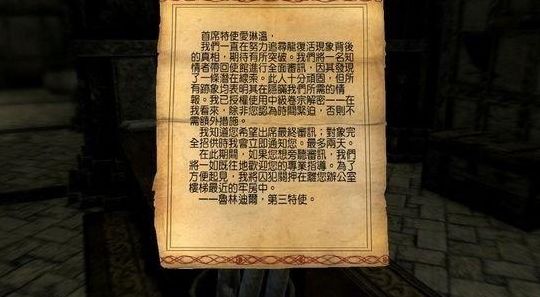 首席特使愛琳溫，
我們一直在努力追尋龍復活現象背後
的真相，期待有所突破。我們將一名知
情者帶回使館進行全面審訊，因其發現
了一條潛在線索。此人十分頑固，但所
有跡象均表明其在隱瞞我們所需的情
報。我已授權使用中級卷宗解密——在
我看來，除非您認為時間緊迫，否則不
需額外措施。
我知道您希望出席最終審訊；對象完
全招供時我會立即通知您。最多兩天。
在此期間，如果您想旁聽審訊，我們
將一如既往地歡迎您的專業指導。為了
方便起見，我將囚犯關押在離您辦公室
樓梯最近的牢房中。
——魯林迪爾，第三特使。